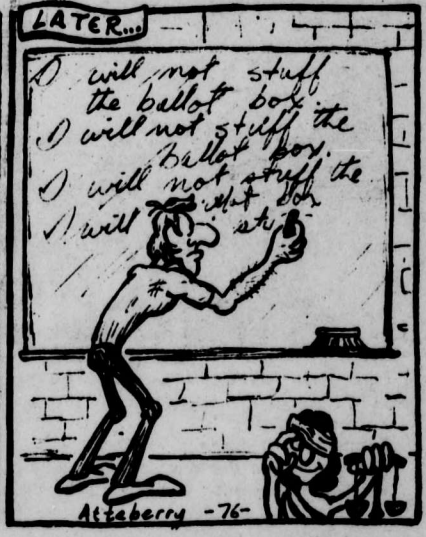 LATER...
I will not stuff
the ballot box.
I will not stuff the
ballot box.
I will not stuff the
ballot box
I will st
Atteberry -76-